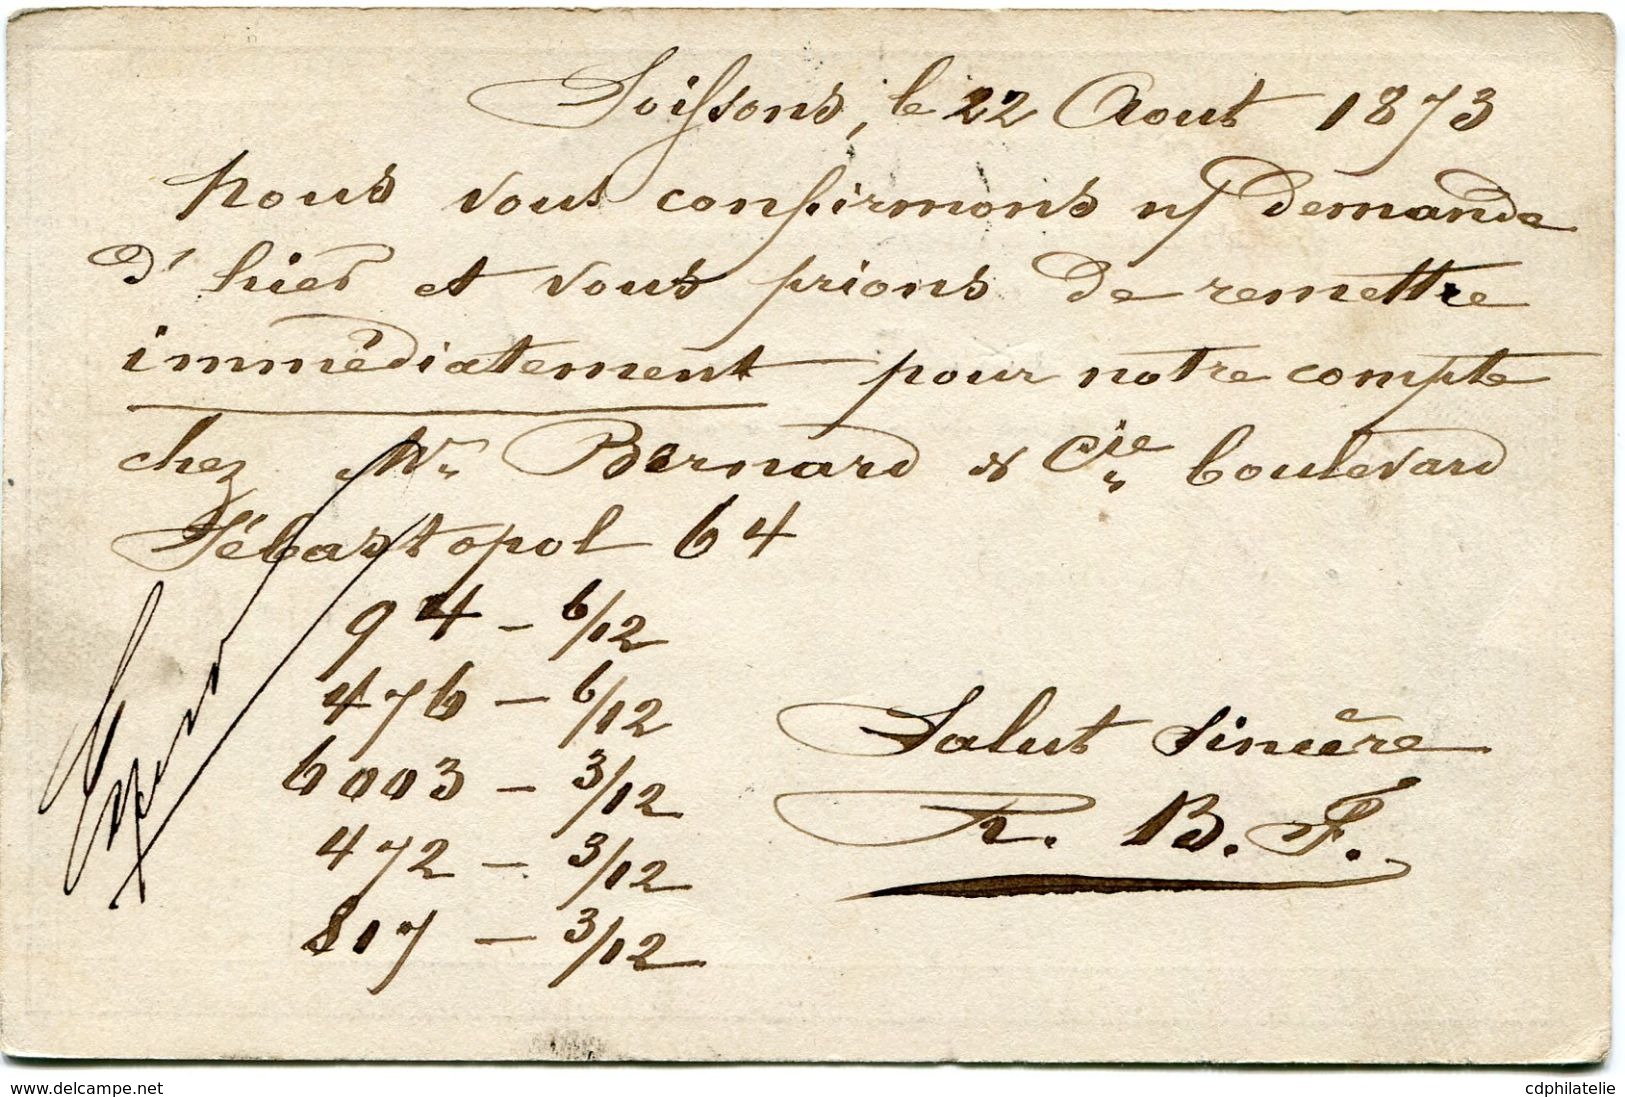 Soissons, le 22 Aout 1873
Nous vous confirmons n/ demande
d'hier et vous prions de remettre
immédiatement pour notre compte
chez Mrs Bernard & Cie boulevard
Sébastopol 64
94 - 6/12
476 - 6/12
6003 - 3/12
472 - 3/12
817 - 3/12
Salut sincère
R. B. F.
www.delcampe.net
cdphilatelie